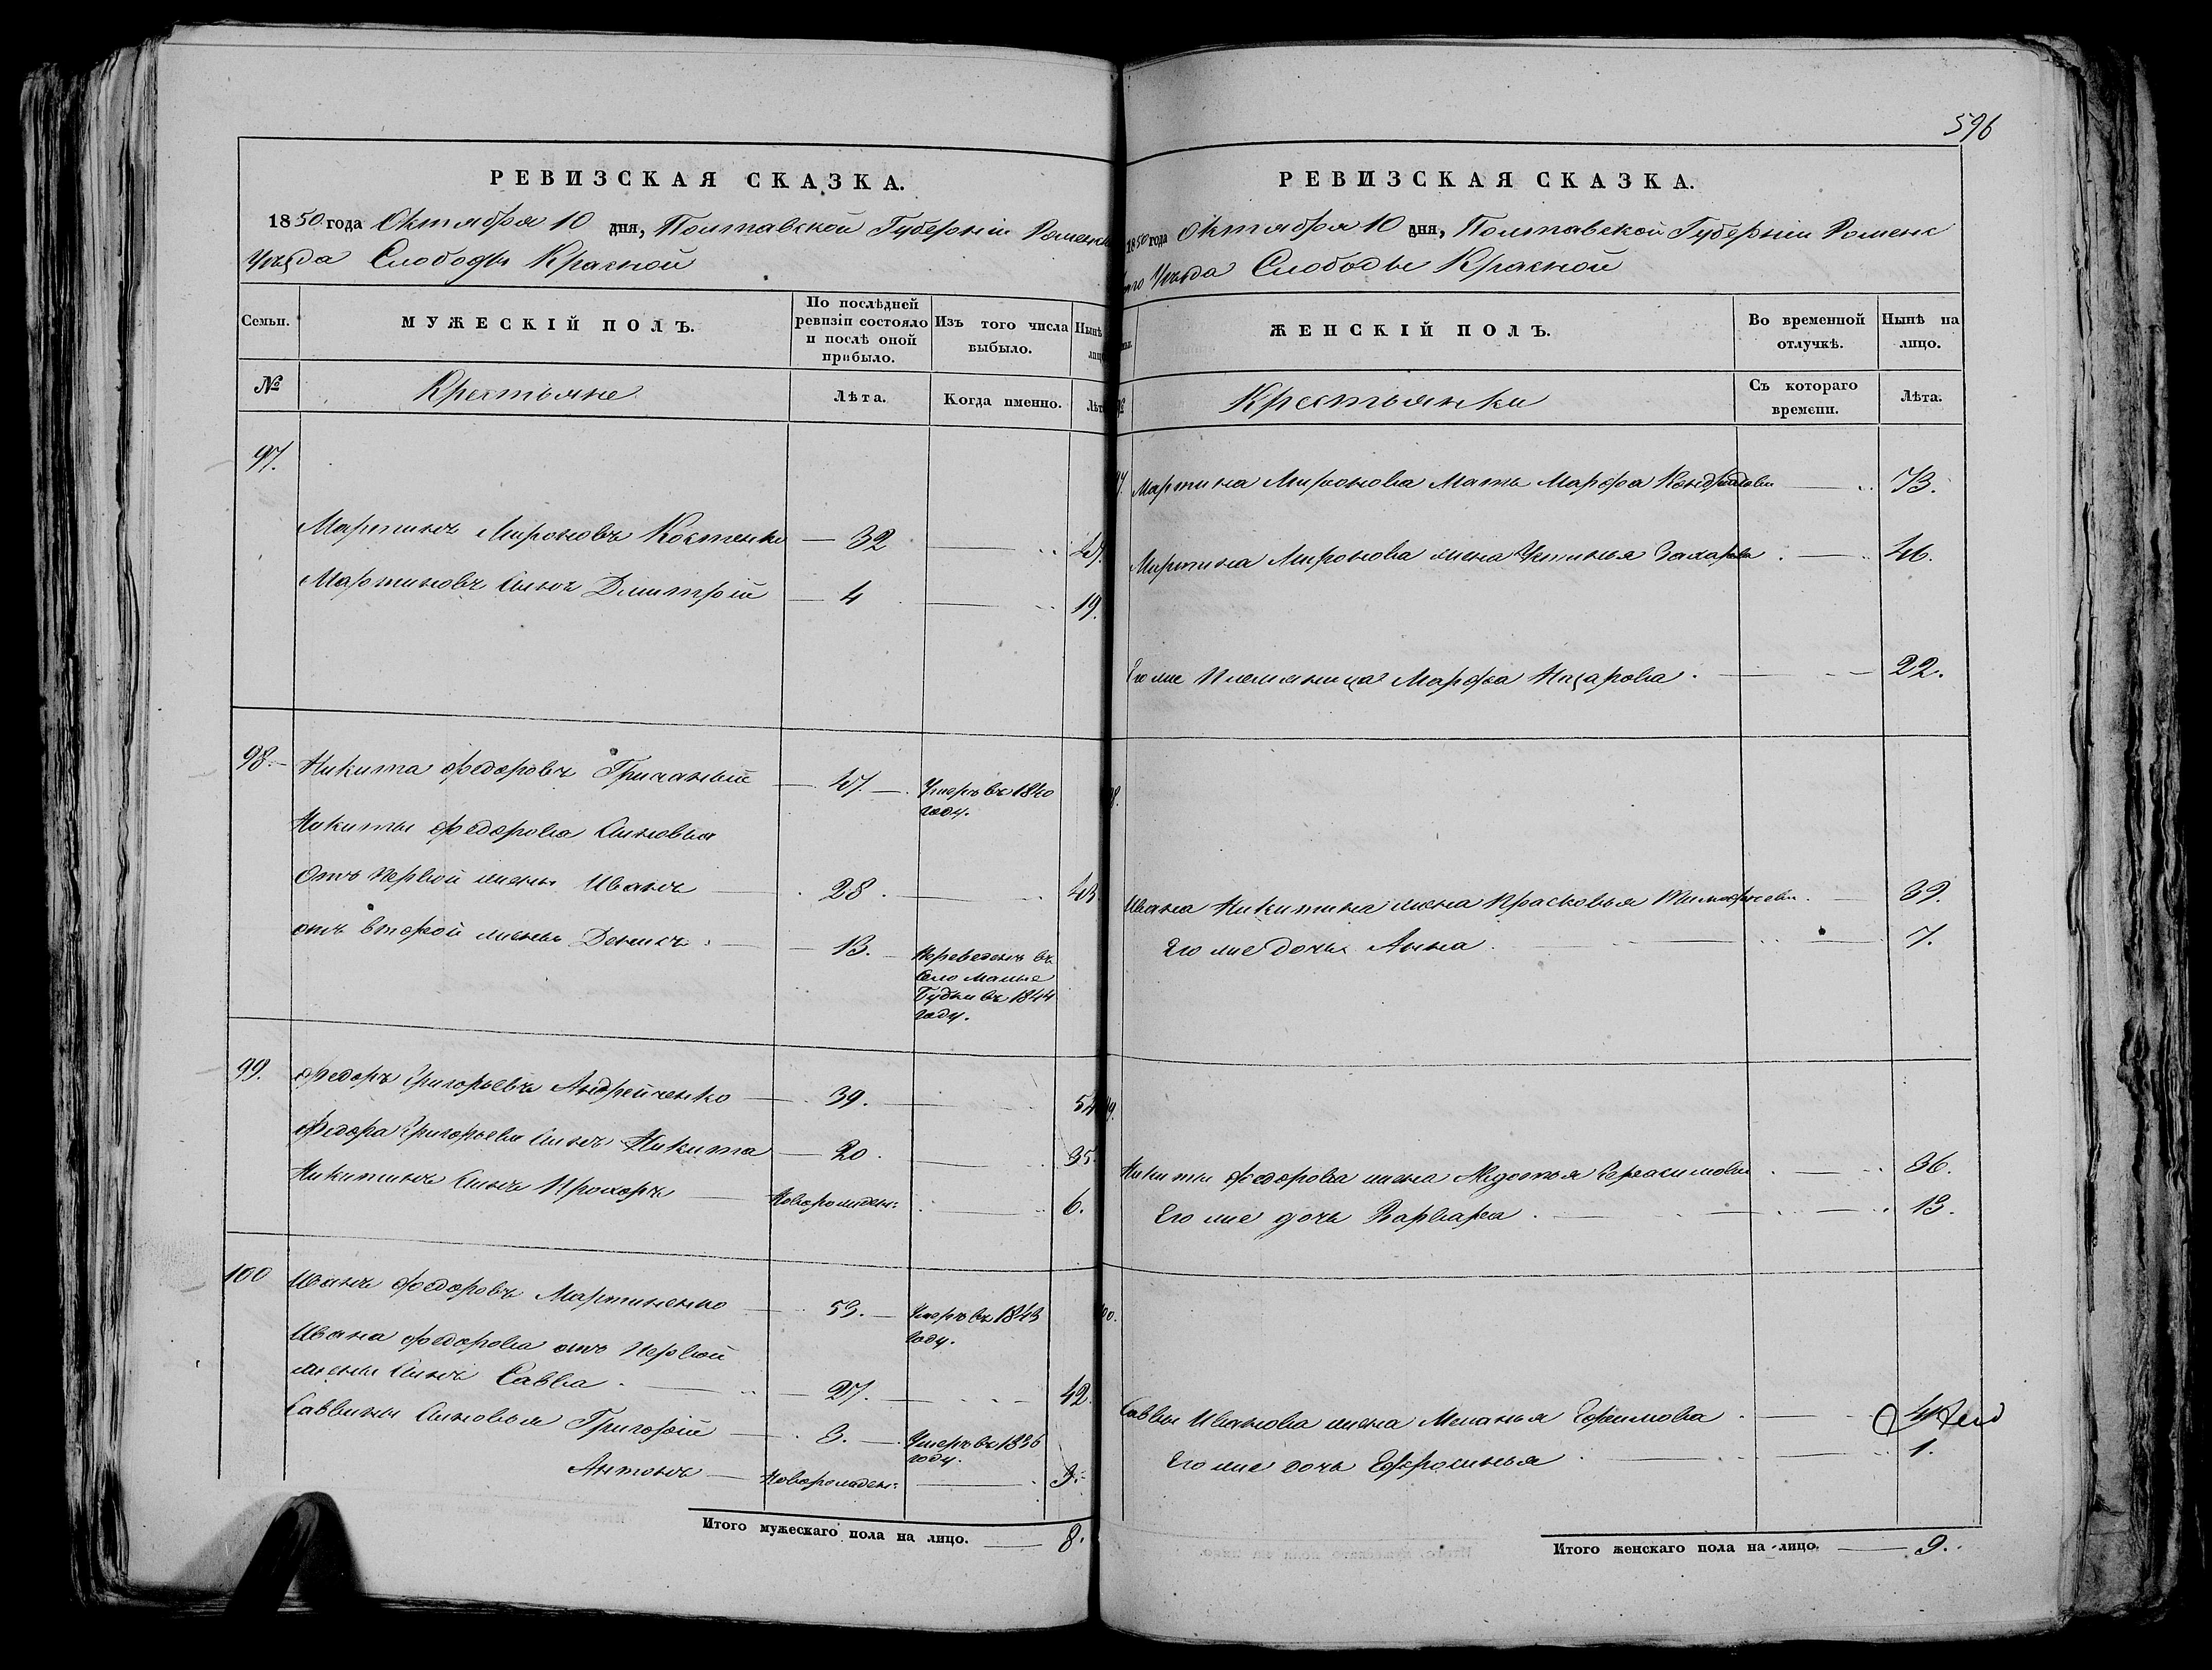 РЕВИЗСКАЯ СКАЗКА.
1850 года Октября 10 дня, Полтавской Губерніи Роменск
Уѣзда Слободы Красной
Семьи.
МУЖЕСКІЙ ПОЛЪ.
По послѣдней ревизіи состояло и послѣ оной прибыло.
Изъ того числа выбыло.
Нынѣ лицо
№
Крестьяне
Лѣта.
Когда именно.
Лѣт
97.
Мартинъ Мироновъ Костенко — 32 —
Мартиновъ Сынъ Дмитрій — 4 — 19.
98. Никита Федоровъ Гричаный — 47. — Умеръ въ 1840
году.
Никиты Федорова Сыновья
Отъ Первой жены Иванъ — 28. — 43
отъ второй жены Денисъ — 13. — Переведенъ въ
Село Малые
Бубны въ 1844
году.
99. Федоръ Григорьевъ Андрейченко — 39. — 54
Федора Григорьева Сынъ Никита — 20. — 35.
Никитинъ Сынъ Прохоръ — Новорожден: — 6.
100 Иванъ Федоровъ Мартиненко — 53. — Умеръ въ 1843
году.
Ивана Федорова отъ Первой
жены Сынъ Савва — 27. — 42
Саввины Сыновья Григорій — 3. — Умеръ въ 1836
году.
Антонъ — Новорожден: — 9.
Итого мужескаго пола на лицо. — 8.
596
РЕВИЗСКАЯ СКАЗКА.
1850 года Октября 10 дня, Полтавской Губерніи Роменс
каго Уѣзда Слободы Красной
ЖЕНСКІЙ ПОЛЪ.
Во временной отлучкѣ.
Нынѣ на лицо.
Крестьянки
Съ котораго времени.
Лѣта.
Мартина Миронова Мать Марфа Кондратова — 73.
Мартина Миронова жена Устинья Захарова — 46.
Его же Племяница Марфа Назарова — 22.
Ивана Никитина жена Прасковья Тимофеева — 39.
Его же дочь Анна — 7.
Никиты Федорова жена Авдотья Герасимова — 36.
Его же дочь Варвара — 13.
Саввы Иванова жена Меланья Ефимова — 41
Его же дочь Ефросинья — 1.
Итого женскаго пола на лицо. — 9.